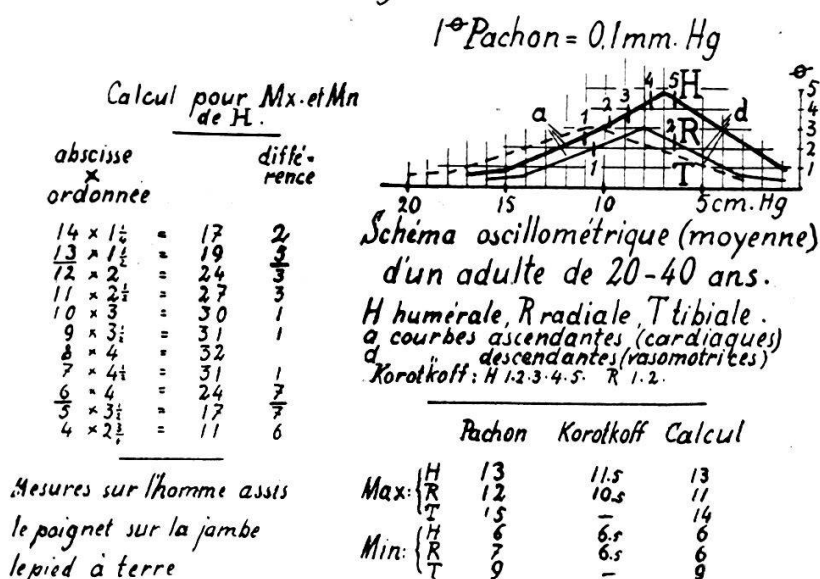 1 Pachon = 0,1 mm. Hg
Calcul pour Mx. et Mn
de H.
abscisse
×
ordonnée
diffé-
rence
14 × 1¼ = 17 2
13 × 1½ = 19 5
12 × 2 = 24 3
11 × 2½ = 27 3
10 × 3 = 30 1
9 × 3½ = 31 1
8 × 4 = 32
7 × 4½ = 31 1
6 × 4 = 24 7
5 × 3½ = 17 7
4 × 2¾ = 11 6
Mesures sur l'homme assis
le poignet sur la jambe
le pied à terre
H
R
T
a
d
1 2 3 4 5
1 2
5
4
3
2
1
0
20 15 10 5 cm. Hg
Schéma oscillométrique (moyenne)
d'un adulte de 20-40 ans.
H humérale, R radiale, T tibiale.
a courbes ascendantes (cardiaques)
d " descendantes (vasomotrices)
Korotkoff: H 1.2.3.4.5. R 1.2.
Pachon Korotkoff Calcul
Max: H 13 11.5 13
R 12 10.5 11
T 15 — 14
Min: H 6 6.5 6
R 7 6.5 6
T 9 — 9